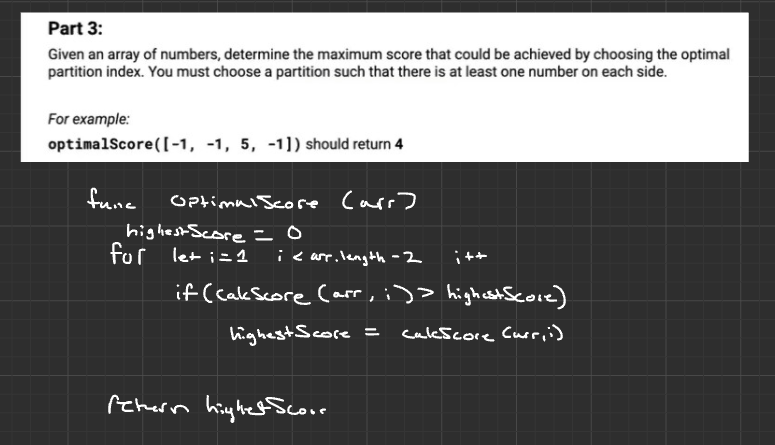 Part 3:
Given an array of numbers, determine the maximum score that could be achieved by choosing the optimal
partition index. You must choose a partition such that there is at least one number on each side.
For example:
optimalScore([-1, -1, 5, -1]) should return 4
func optimalScore (arr)
highestScore = 0
for let i=1 i < arr.length - 2 i++
if (calcScore (arr, i) > highestScore)
highestScore = calcScore (arr, i)
return highestScore